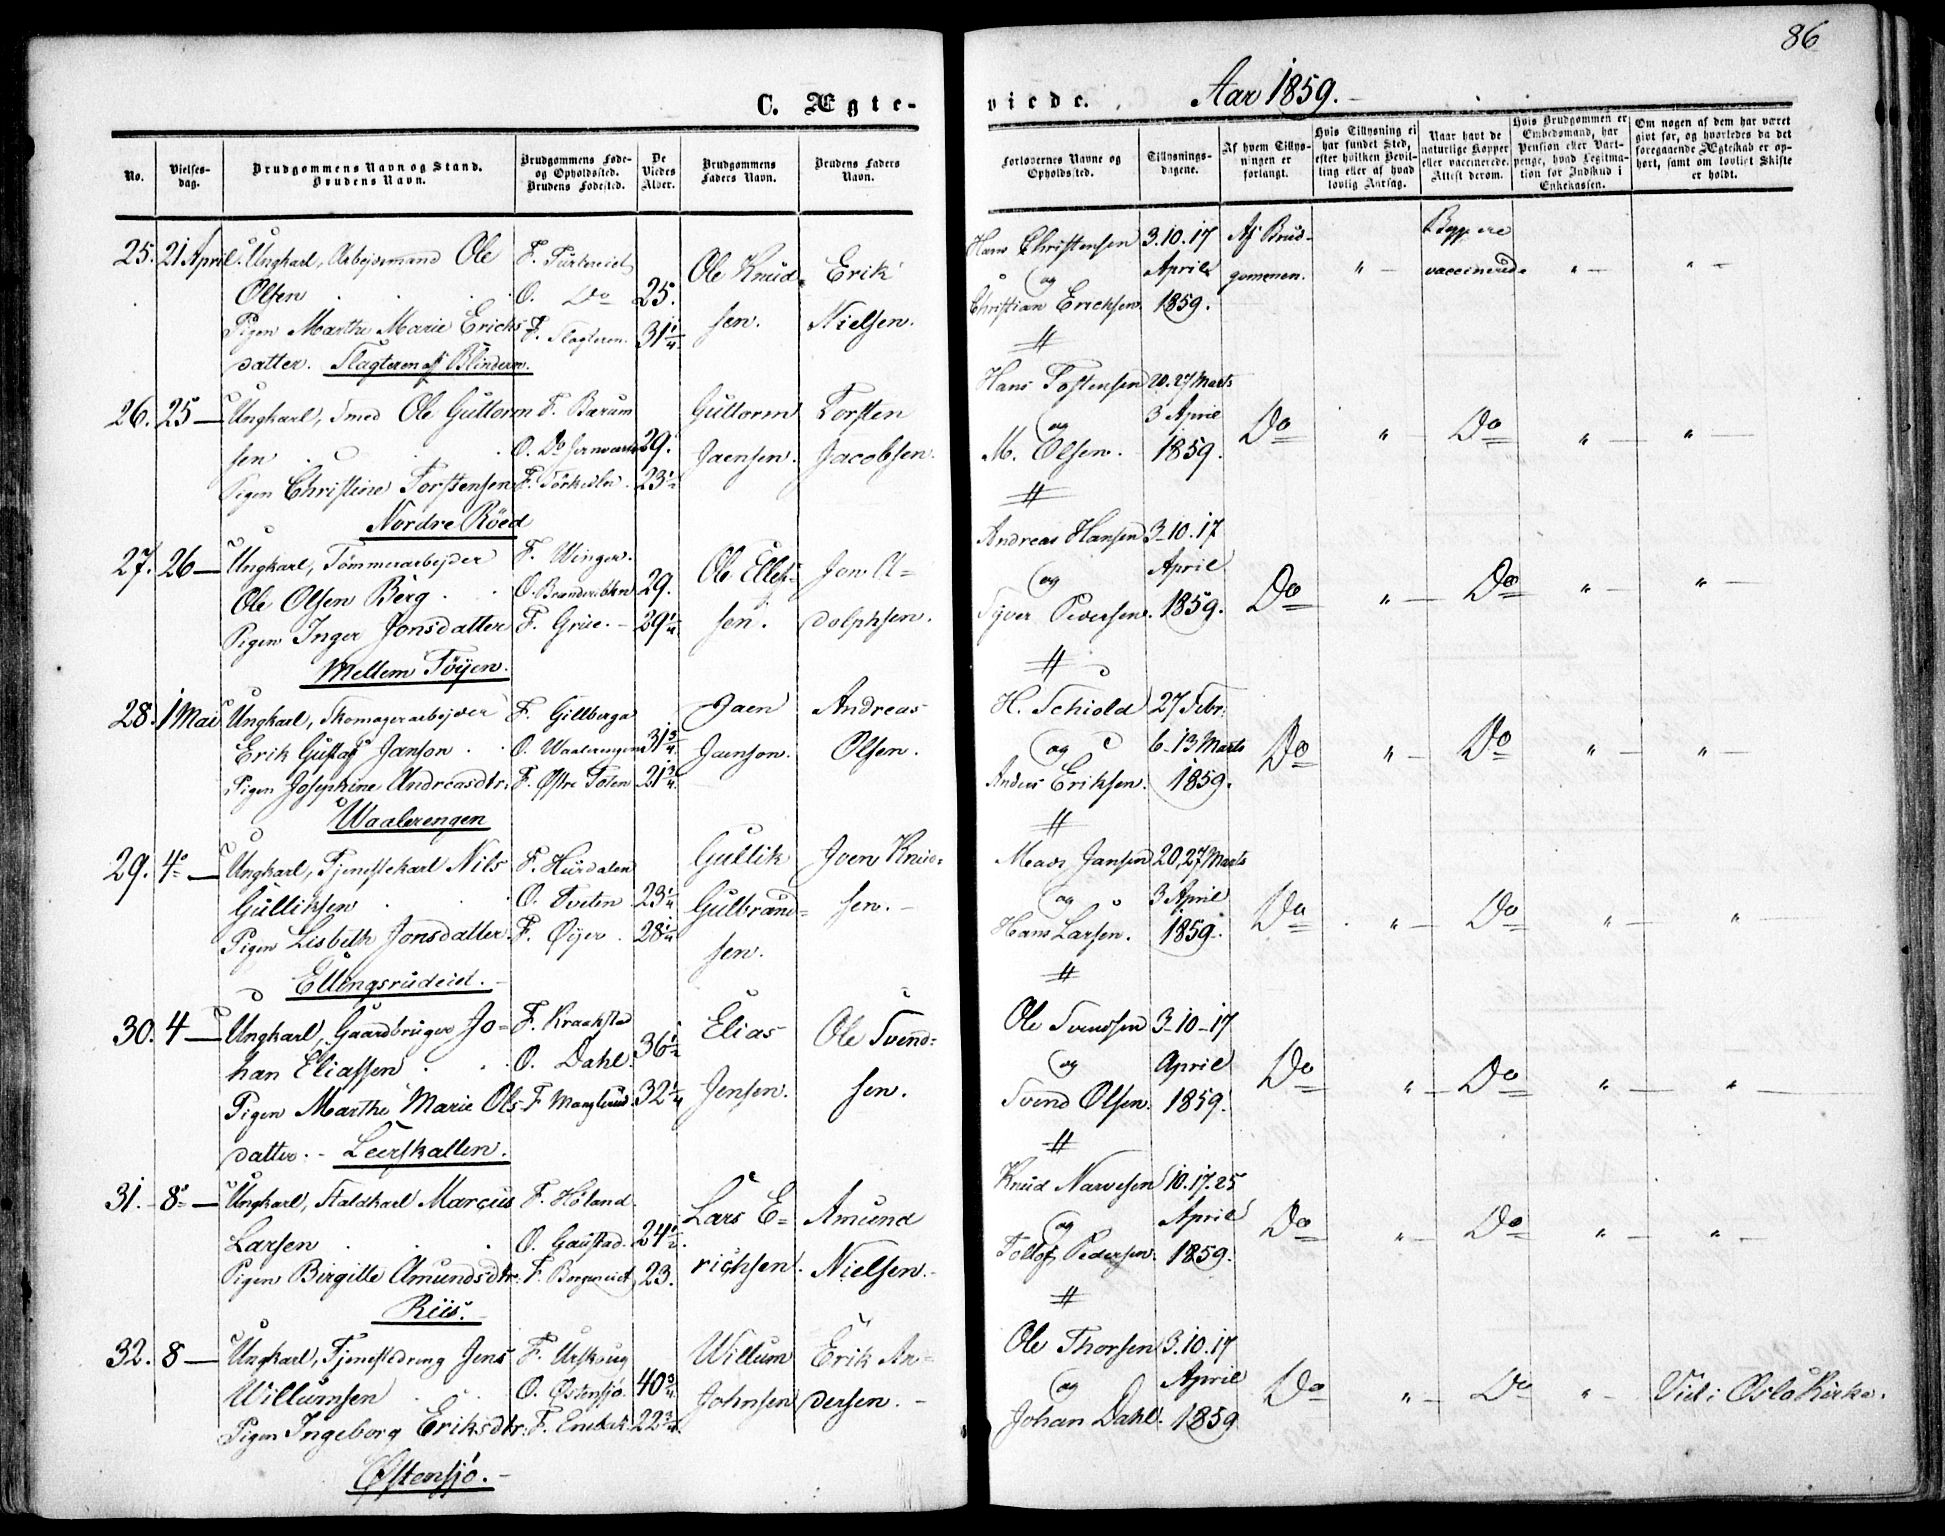 86
C. Ægte-
viede.
Aar 1859.
No.
Vielses-
dag.
Brudgommens Navn og Stand.
Brudens Navn.
Brudgommens Føde-
og Opholdssted.
Brudens Fødested.
De
Viedes
Alder.
Brudgommens
Faders Navn.
Brudens Faders
Navn.
Forlovernes Navne og
Opholdssted.
Tillysnings-
dagene.
Af hvem Tillys-
ningen er
forlangt.
Hvis Tillysning ei
har fundet Sted,
efter hvilken Bevil-
ling eller af hvad
lovlig Aarsag.
Naar havt de
naturlige Kopper
eller vaccinerede.
Attest derom.
Hvis Brudgommen er
Embedsmand, har
Pension eller Vart-
penge, hvad Legitima-
tion for Indskud i
Enkekassen.
Om nogen af dem har været
gift før, og hvorledes da det
foregaaende Ægteskab er op-
hørt, samt om lovligt Skifte
er holdt.
25. 21 April. Ungkarl, Arbejdsmand Ole
Olsen
Pigen Marthe Marie Erichs
datter. Slagteren af Blindern.
O. Do 25.
F. Slagteren. 31 1/4.
Ole Knud
sen.
Erik
Nielsen.
Hans Christensen
og
Christian Erichsen
3.10.17
April
1859.
Af Brud-
gommen.
" —
Begge ere
vaccinerede
" —
" —
26. 25 — Ungkarl, Smed Ole Guttorm
sen
Pigen Christine Torstensen
Nordre Röed
F. Bærum
O. Do Jernværk 29.
23 1/2
Guttorm
Jaensen.
Torsten
Jacobsen.
Hans Tostensen
og
M. Olsen.
20. 27 Marts
3 April
1859.
Do
" —
Do
" —
" —
27. 26 — Ungkarl, Tömmerarbejder
Ole Olsen Berg
Pigen Inger Jonsdatter
Mellem Töyen.
F. Winger.
29.
F. Grue. 29 1/4
Ole Ellef-
sen.
Jon A-
dolphsen.
Andreas Hansen
og
Syver Pedersen.
3-10.17
April
1859.
Do
" —
Do
" —
" —
28. 1 Mai Ungkarl, Skomagerarbejder
Erik Gustaf Janson
Pigen Josephine Andreasdtr.
Waalerengen
F. Gillberga
O. Waalerengen 31 3/4.
F. Østre Toten 21 3/4.
Jaen
Jaenson.
Andreas
Olsen.
H. Schiold
og
Anders Eriksen.
27 Febr.
6-13 Marts
1859.
Do
" —
Do
" —
" —
29. 4 — Ungkarl, Tjenestekarl Nils
Gulliksen
Pigen Lisbeth Jonsdatter.
Ellingsrudeid.
F. Hurdalen
O. Tveten 23 1/4
F. Øyer 28 1/4
Gullik
Gulbrand-
sen.
Joen Knud-
sen.
Mads Jansen
og
Hans Larsen.
20, 27 Marts
3 April
1859.
Do
" —
Do
" —
" —
30. 4 — Ungkarl, Gaardbruger Jo-
han Eliassen
Pigen Marthe Marie Ols
datter. Leerskallen.
F. Kraakstad
O. Dahl. 36 1/2
F. Manglerud. 32 1/4
Elias
Jensen.
Ole Svend-
sen.
Ole Svendsen
og
Svend Olsen.
3-10-17
April
1859.
Do
" —
Do
" —
" —
31. 8 — Ungkarl, Staldkarl Marcus
Larsen
Pigen Birgitte Amundsdtr.
Riis.
F. Høland
O. Gaustad. 24 1/2.
23.
Lars E-
richsen.
Amund
Nielsen.
Knud Narvesen
og
Tollof Pedersen.
10.17.25
April
1859.
Do
" —
Do
" —
" —
32. 8 — Ungkarl, Tjenestedreng Jens
Willumsen
Pigen Ingeborg Eriksdtr.
Østensjö.
F. Urskoug
O. Østensjø. 40 3/4
F. Enebak 22 3/4
Willum
Johnsen
Erik An-
dersen.
Ole Thorsen
og
Johan Dahl.
3.10.17
April
1859
Do
" —
Do
" —
Vid: Oslo Kirke.